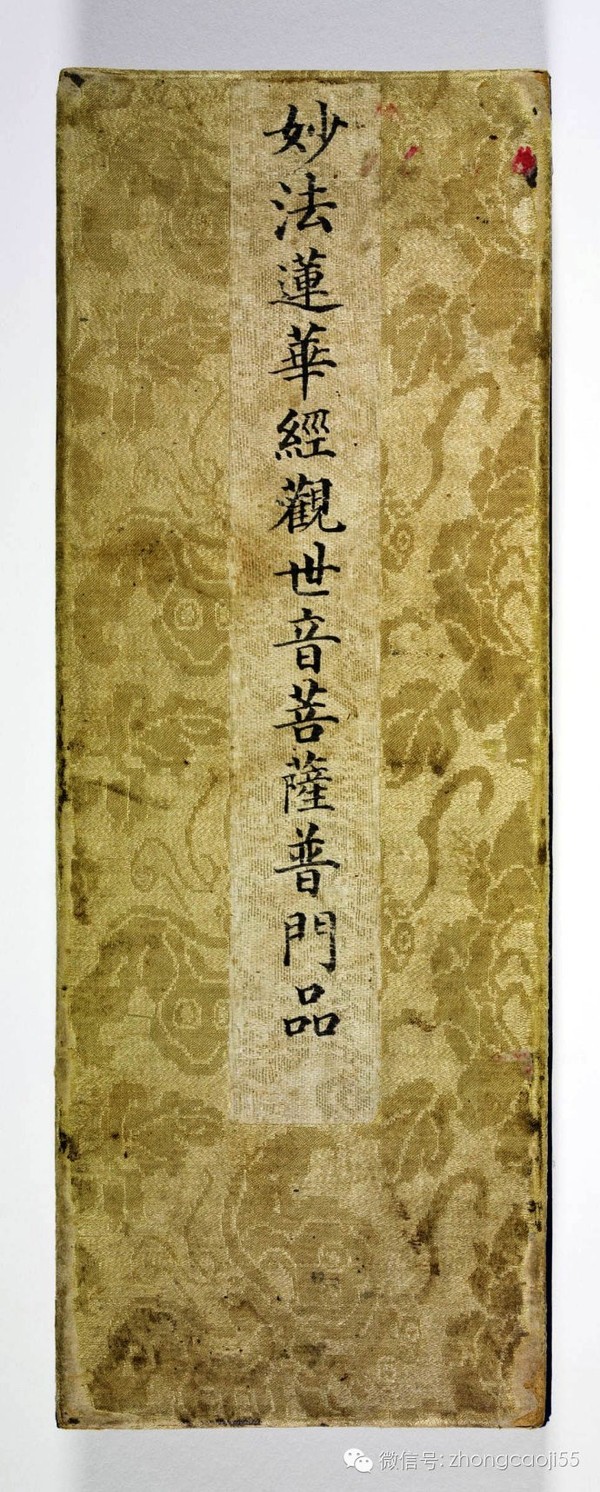 妙法蓮華經觀世音菩薩普門品
微信号: zhongcaoji55